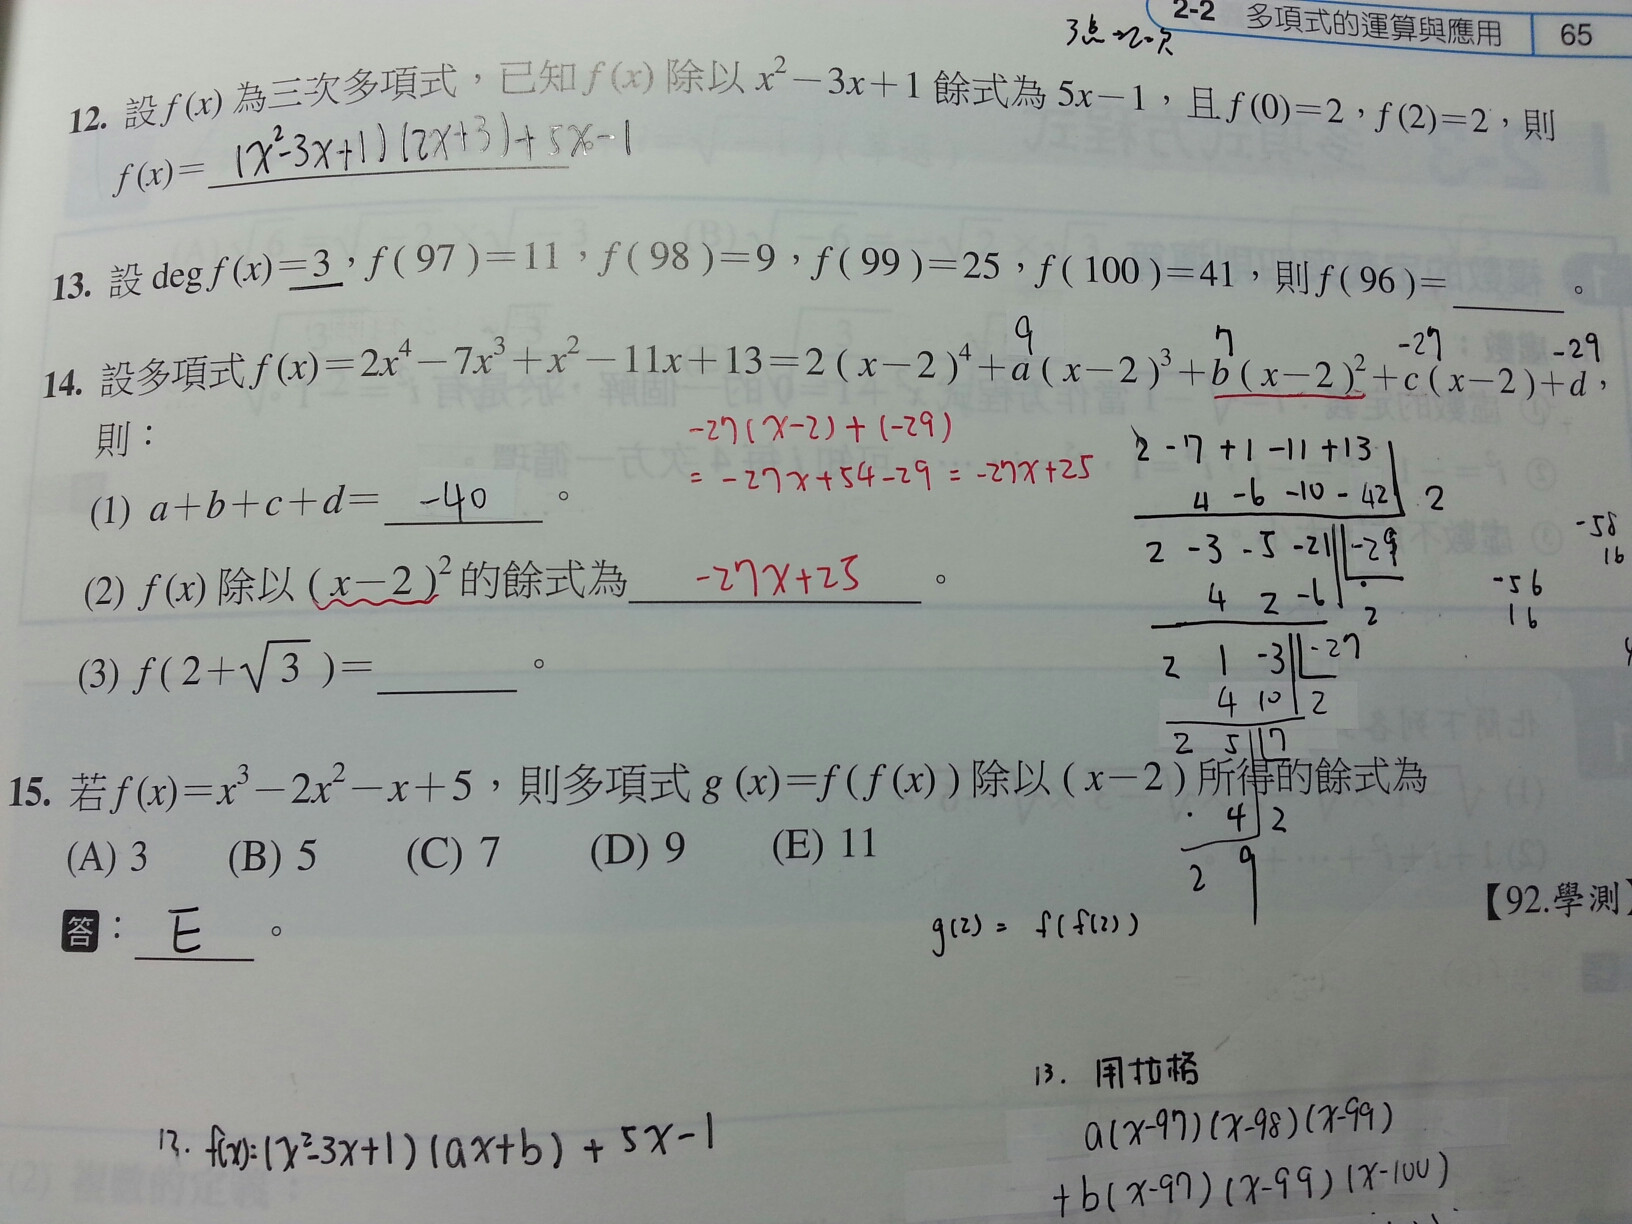 2-2 多項式的運算與應用 65
3点→2次
12. 設f(x)為三次多項式，已知f(x)除以x²−3x+1餘式為5x−1，且f(0)=2，f(2)=2，則
f(x)= (x²-3x+1)(2x+3)+5x-1
13. 設deg f(x)=3，f(97)=11，f(98)=9，f(99)=25，f(100)=41，則f(96)=______。
9 7 -27 -29
14. 設多項式f(x)=2x⁴−7x³+x²−11x+13=2(x−2)⁴+a(x−2)³+b(x−2)²+c(x−2)+d，
則：
-27(x-2)+(-29)
= -27x+54-29 = -27x+25
(1) a+b+c+d= -40 。
(2) f(x)除以(x−2)²的餘式為 -27x+25 。
(3) f(2+√3)=______。
2 -7 +1 -11 +13
4 -6 -10 -42 2
2 -3 -5 -21 -29
4 2 -6 2
2 1 -3 -27
4 10 2
2 5 7
4 2
2 9
-58
16
-56
16
15. 若f(x)=x³−2x²−x+5，則多項式g(x)=f(f(x))除以(x−2)所得的餘式為
(A) 3 (B) 5 (C) 7 (D) 9 (E) 11
【92.學測】
答：E。
g(2)= f(f(2))
12. f(x)=(x²-3x+1)(ax+b)+5x-1
13. 用拉格
a(x-97)(x-98)(x-99)
+b(x-97)(x-99)(x-100)